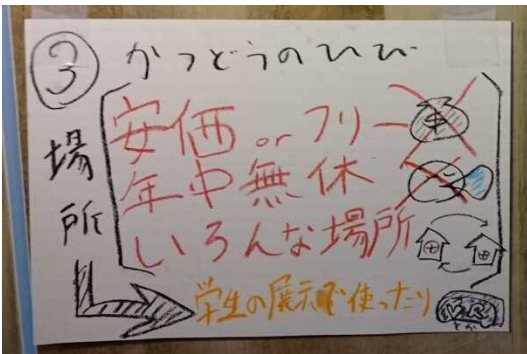 ③ かつどうのひび
場所
安価 or フリー
年中無休
いろんな場所
学生の展示で使ったり
VR
とか